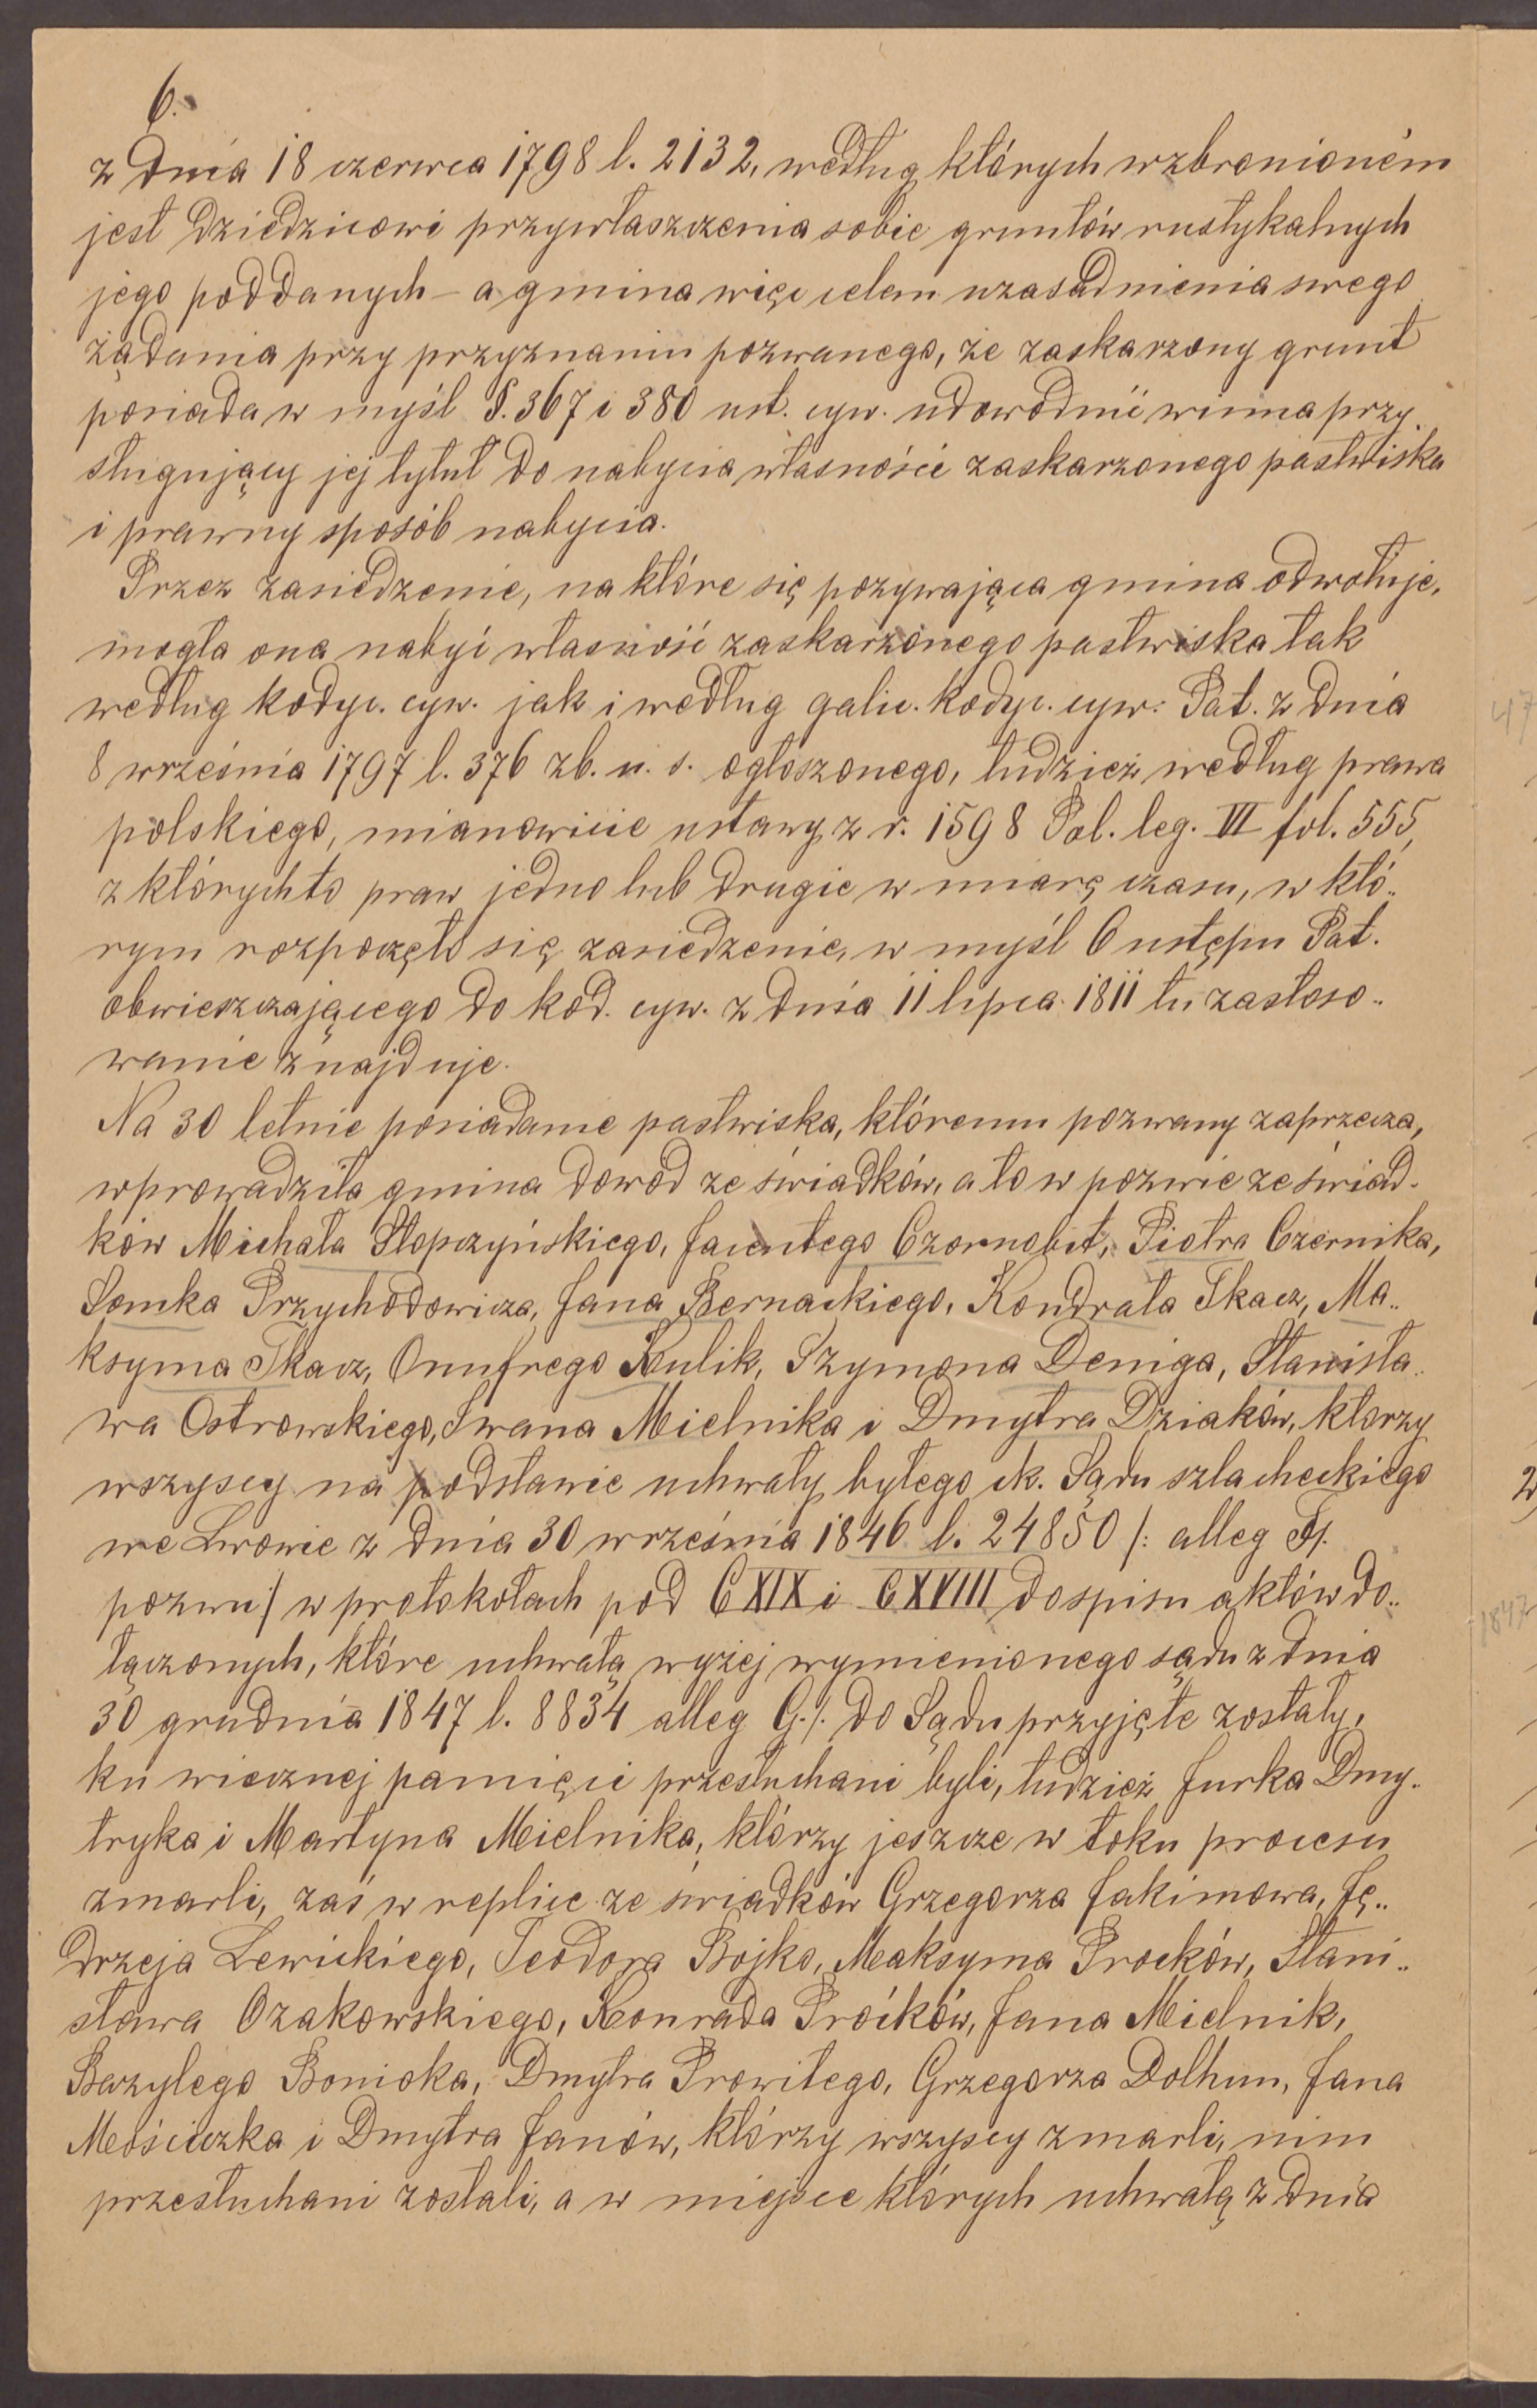 6.
z dnia 18 czerwca 1798 l. 2132, według których wzbronioném
jest dziedzicowi przywłaszczenia sobie gruntów rustykalnych
jego poddanych – a gmina więc celem uzasadnienia swego
żądania przy przyznaniu pozwanego, że zaskarzony grunt
posiada w myśl §. 367 i 380 ust. cyw. udowodnić winna przy-
sługujący jej tytuł do nabycia własności zaskarzonego pastwiska
i prawny sposób nabycia.
Przez zasiedzenie, na które się pozywająca gmina odwołuje,
mogła ona nabyć własność zaskarzonego pastwiska tak
według kodyc. cyw. jak i według galic. kodyc. cyw: Pat. z dnia
8 września 1797 l. 376 zb. u. s. ogłoszonego, tudzież według prawa
polskiego, mianowicie ustawy z r. 1598 Pol. leg. VI fol. 555,
z którychto praw jedno lub drugie w miarę czasu, w któ-
rym rozpoczęło się zasiedzenie, w myśl 6 ustępu Pat.
obwieszczającego do kod. cyw. z dnia 11 lipca 1811 tu zastoso-
wanie znajduje.
Na 30 letnie posiadanie pastwiska, któremu pozwany zaprzecza,
wprowadziła gmina dowód ze świadków, a to w pozwie ze świad-
ków Michała Słopczyńskiego, Jacentego Czornobit, Piotra Czernika,
Somka Przychodowicza, Jana Bernackiego, Kondrata Tkacz, Ma-
ksyma Tkacz, Onufrego Kulik, Szymona Deniga, Stanisła-
wa Ostrowskiego, Iwana Mielnika i Dmytra Dziaków, którzy
wszyscy na podstawie uchwały byłego ck. Sądu szlacheckiego
we Lwowie z dnia 30 września 1846 l. 24850 /: alleg F/.
pozwu:/ w protokołach pod CXIX i CXVIII do spisu aktów do-
łączonych, które uchwałą wyżej wymienionego sądu z dnia
30 grudnia 1847 l. 8834 alleg G./. do Sądu przyjęte zostały,
ku wiecznej pamięci przesłuchani byli, tudzież Jurka Dmy-
tryka i Martyna Mielnika, którzy jeszcze w toku procesu
zmarli, zaś w replice ze świadków Grzegorza Jakimowa, Ję-
drzeja Lewickiego, Teodora Bojko, Maksyma Proców, Stani-
sława Ozakowskiego, Konrada Proików, Jana Mielnik,
Bazylego Bonioka, Dmytra Prowitego, Grzegorza Dolhun, Jana
Mościczka i Dmytra Janów, którzy wszyscy zmarli, nim
przesłuchani zostali, a w miejsce których uchwałą z dnia